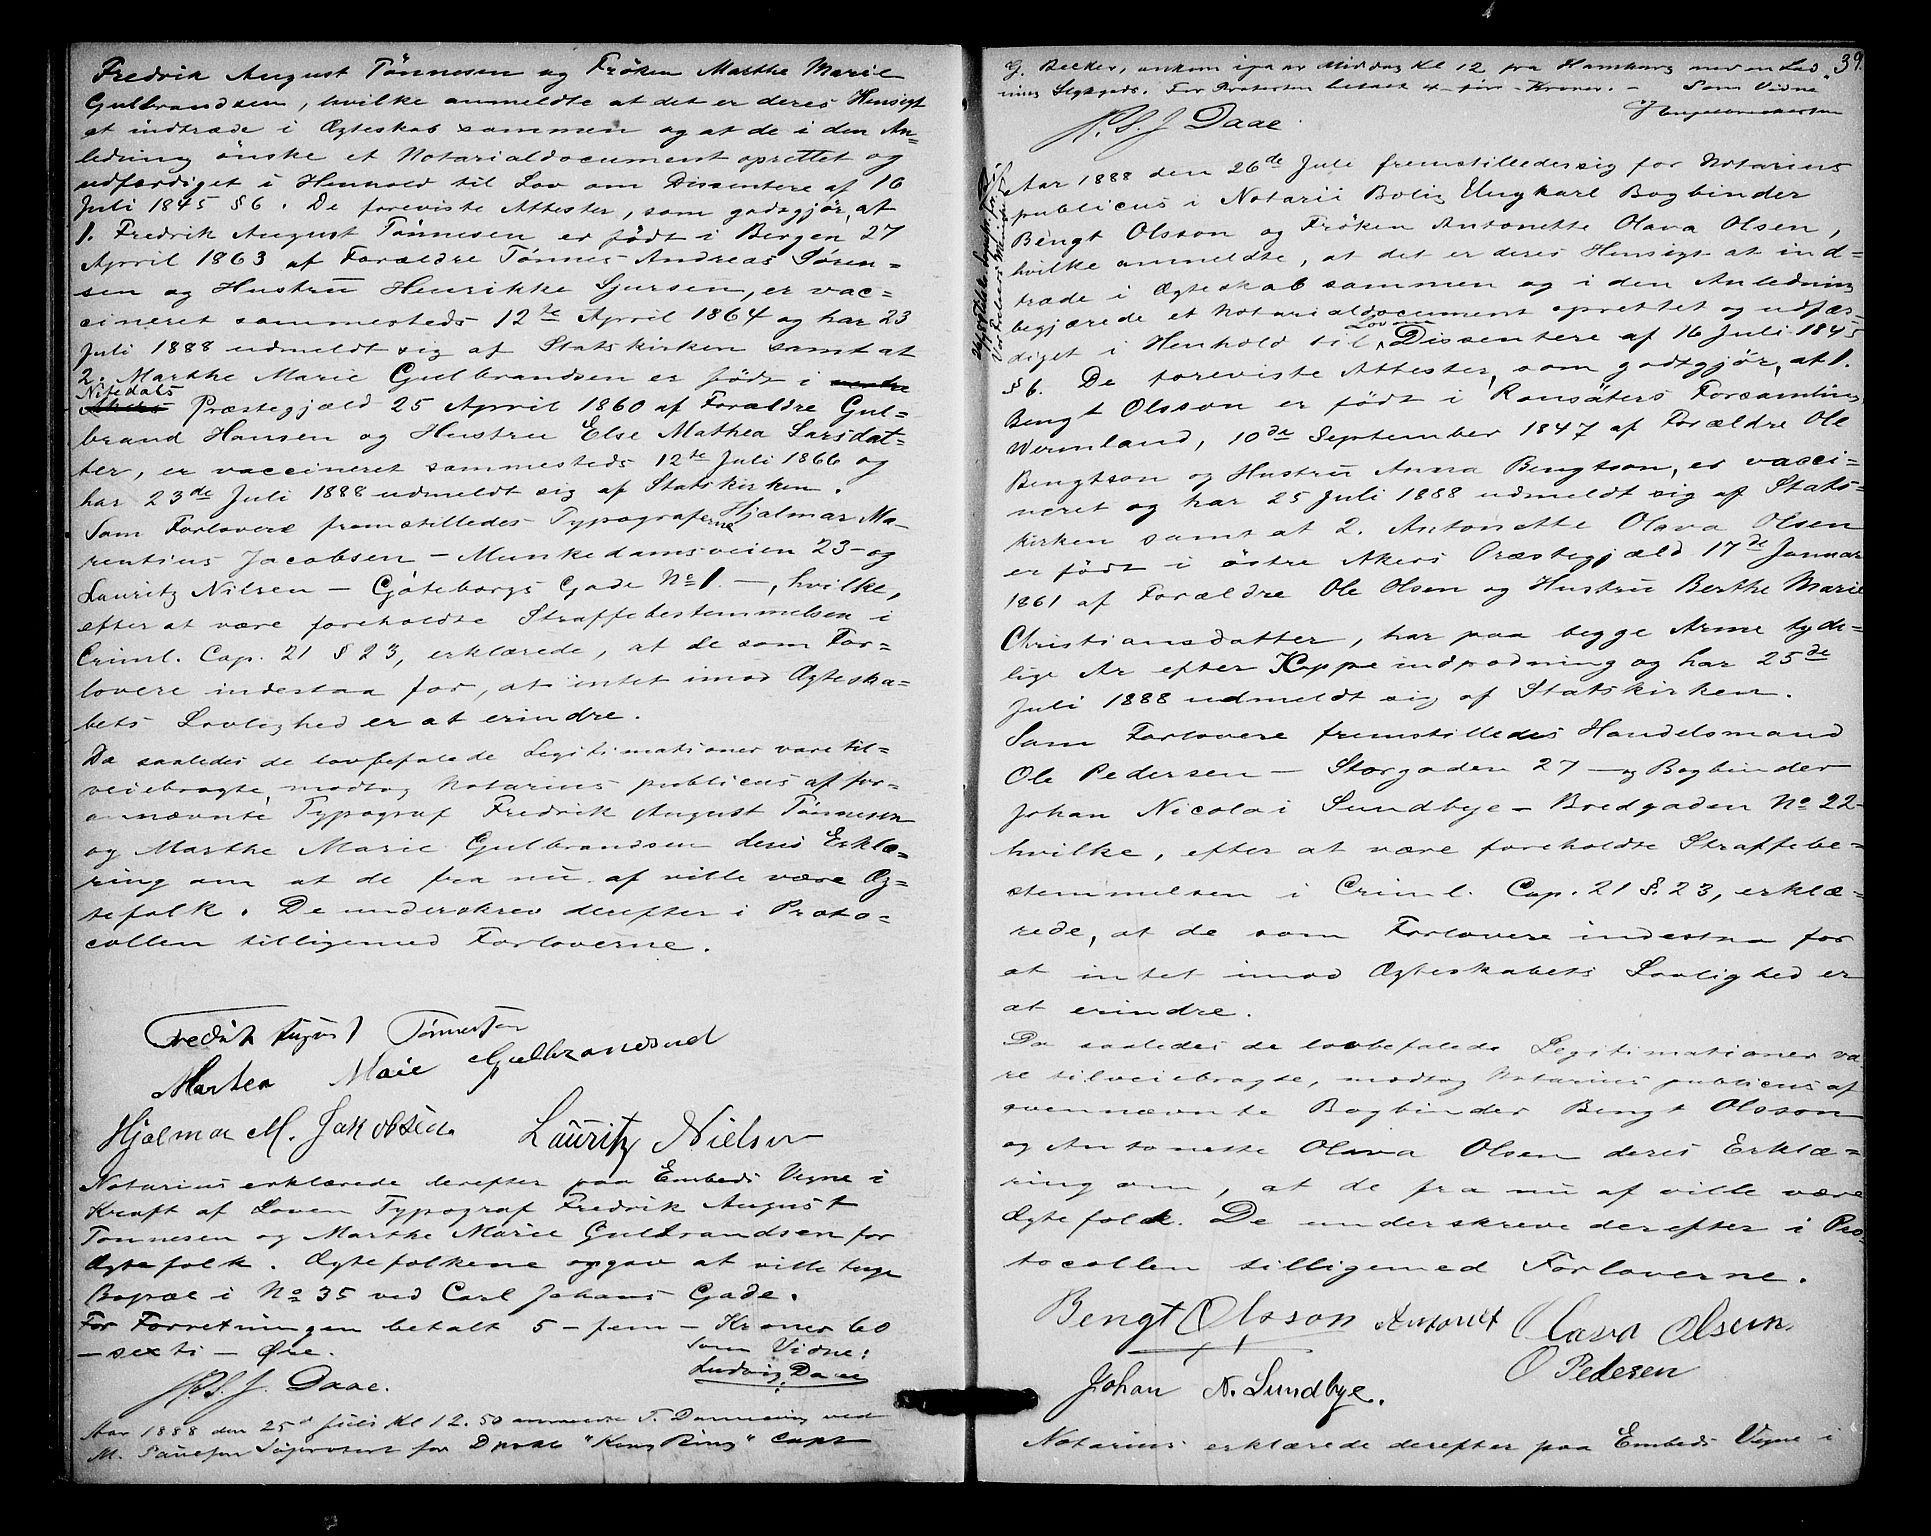 Fredrik August Tönnesen og Fröken Marthe Marie
Gulbrandsen, hvilke anmeldte at det er deres Hensigt
at indtræde i Ægteskab sammen og at de i den An=
ledning önske et Notarialdocument oprettet og
udfærdiget i Henhold til Lov om Dissentere af 16
Juli 1845 § 6. De foreviste Attester, som godtgjör, at
1. Fredrik August Tönnesen er födt i Bergen 27
April 1863 af Forældre Tönnes Andreas Sören=
sen og Hustru Henrikke Sjursen, er vac=
cineret sammesteds 12te April 1864 og har 23
Juli 1888 udmeldt sig af Statskirken samt at
2. Marthe Marie Gulbrandsen er födt i
Nitedals
Akers Præstegjæld 25 April 1860 af Forældre Gul=
brand Hansen og Hustru Else Mathea Larsdat=
ter, er vaccineret sammesteds 12te Juli 1866 og
har 23de Juli 1888 udmeldt sig af Statskirken.
Som Forlovere fremstilledes Typograferne Hjalmar Ma-
rentius Jacobsen – Munkedamsveien 23 – og
Lauritz Nilsen – Göteborgs Gade No 1. –, hvilke,
efter at være foreholdte Straffebestemmelsen i
Criml. Cap. 21 § 23, erklærede, at de som For=
lovere indestaa for, at intet imod Ægteska=
bets Lovlighed er at erindre.
Da saaledes de lovbefalede Legitimationer vare til=
veiebragte, modtog Notarius publicus af for=
annævnte Typograf Fredrik August Tönnesen
og Marthe Marie Gulbrandsen deres Erklæ=
ring om at de fra nu af ville være Æg=
tefolk. De underskrev derefter i Proto=
collen tilligemed Forloverne.
Fredrik August Tönnesen
Marthea Maie Gulbrandsend
Hjalmar M. Jakobsen Lauritz Nielsen
Notarius erklærede derefter paa Embeds Vegne i
Kraft af Loven Typograf Fredrik August
Tönnesen og Marthe Marie Gulbrandsen for
Ægtefolk. Ægtefolkene opgav at ville tage
Bopæl i No 35 ved Carl Johans Gade.
For Forretningen betalt 5 – fem – Kroner 60
– sexti – Öre. Som Vidne:
P. S. J. Daae. Ludvig Daae
Aar 1888 den 25d Juli Kl 12.50 anmeldte T. Dannevig ved
M. Söprotest for Dpskb "King Ring" Capt
39.
G. Becker, ankom igaar Middag Kl 12 fra Hamburg med en Lad
ning Stykgods. For Protesten betalt 4 – fire – Kroner. – Som Vidne
P. S. J Daae
Aar 1888 den 26de Juli fremstilledes sig for Notarius
publicus i Notarii Bolig Ungkarl Bogbinder
Bengt Olsson og Fröken Antonette Olava Olsen,
hvilke anmeldte, at det er deres Hensigt at ind=
træde i Ægteskab sammen og i den Anledning
begjærede et Notarialdocument oprettet og udfær=
diget i Henhold til Lov om Dissentere af 16 Juli 1845
§ 6. De foreviste Attester, som godtgjör, at 1.
Bengt Olsson er födt i Ransäters Forsamling
Wermland, 10de September 1847 af Forældre Ole
Bengtson og Hustru Anna Bengtson, er vacci=
neret og har 25 Juli 1888 udmeldt sig af Stats=
kirken samt at 2. Antonette Olava Olsen
er födt i östre Akers Præstegjæld 17de Januar
1861 af Forældre Ole Olsen og Hustru Berthe Marie
Christiansdatter, har paa begge Arme tyde=
lige Ar efter Koppeindpodning og har 25de
Juli 1888 udmeldt sig af Statskirken.
Som Forlovere fremstilledes Handelsmand
Ole Pedersen – Storgaden 27 – og Bogbinder
Johan Nicolai Sundbye – Bredgaden No 22 –
hvilke, efter at være foreholdte Straffebe=
stemmelsen i Criml. Cap. 21 §. 23, erklæ=
rede, at de som Forlovere indestaa for
at intet imod Ægteskabets Lovlighed er
at erindre.
Da saaledes de lovbefalede Legitimationer va
re tilveiebragte, modtog Notarius publicus af
ovennævnte Bogbinder Bengt Olsson
og Antonette Olava Olsen deres Erklæ=
ring om, at de fra nu af ville være
Ægtefolk. De underskreve derefter i Pro=
tocollen tilligemed Forloverne.
Bengt Olsson Antonet Olava Olsen.
Johan N. Sundbye. O Pedersen
Notarius erklærede derefter paa Embeds Vegne i